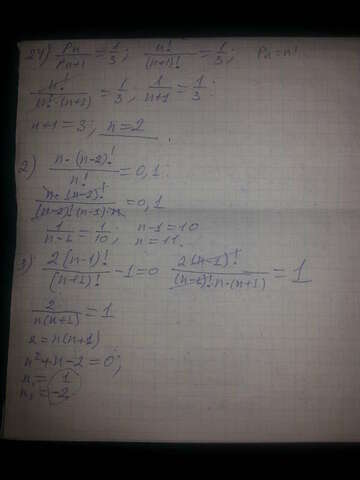 24) Pn/Pn+1 = 1/3; n!/(n+1)! = 1/3; Pn = n!
n!/(n!·(n+1)) = 1/3; 1/(n+1) = 1/3;
n+1 = 3; n = 2.
2) n·(n-2)!/n! = 0,1
n·(n-2)!/((n-2)!(n-1)·n) = 0,1
1/(n-1) = 1/10; n-1 = 10
n = 11.
3) 2(n-1)!/(n+1)! - 1 = 0 2(n-1)!/((n-1)!·n·(n+1)) = 1
2/(n(n+1)) = 1
2 = n(n+1)
n²+n-2 = 0;
n₁ = 1
n₂ = -2